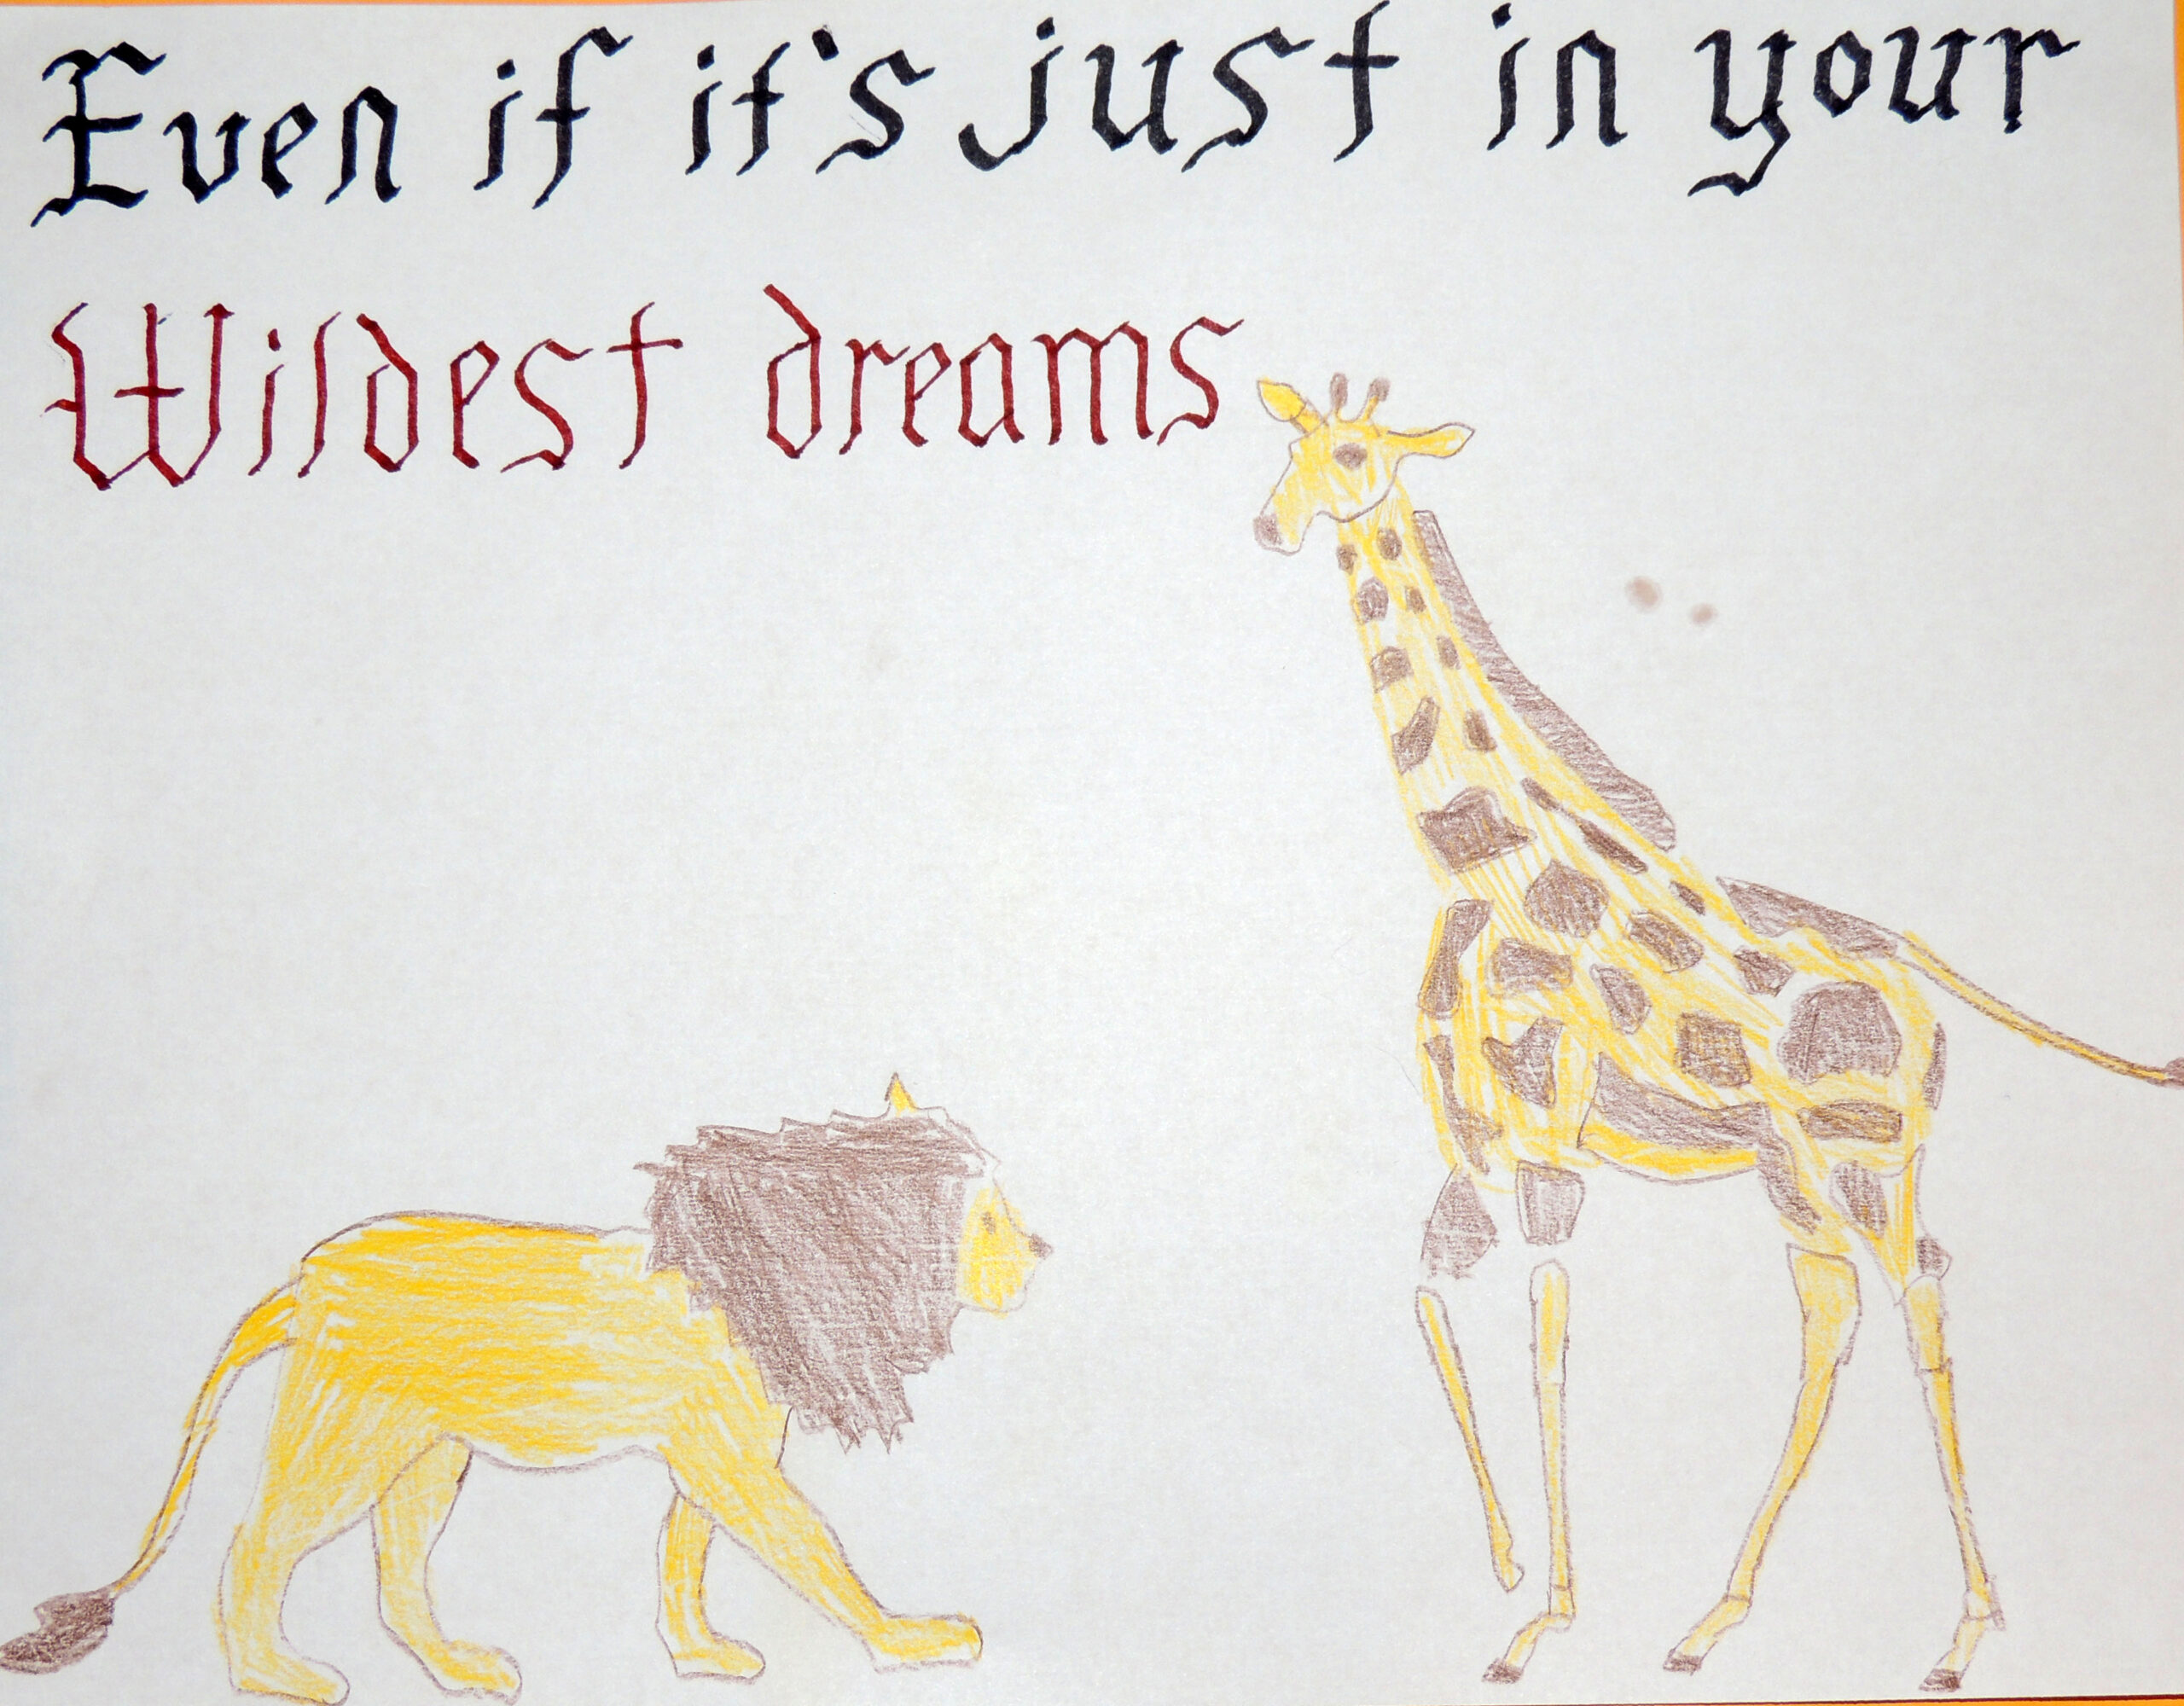 Even if it's just in your
Wildest dreams